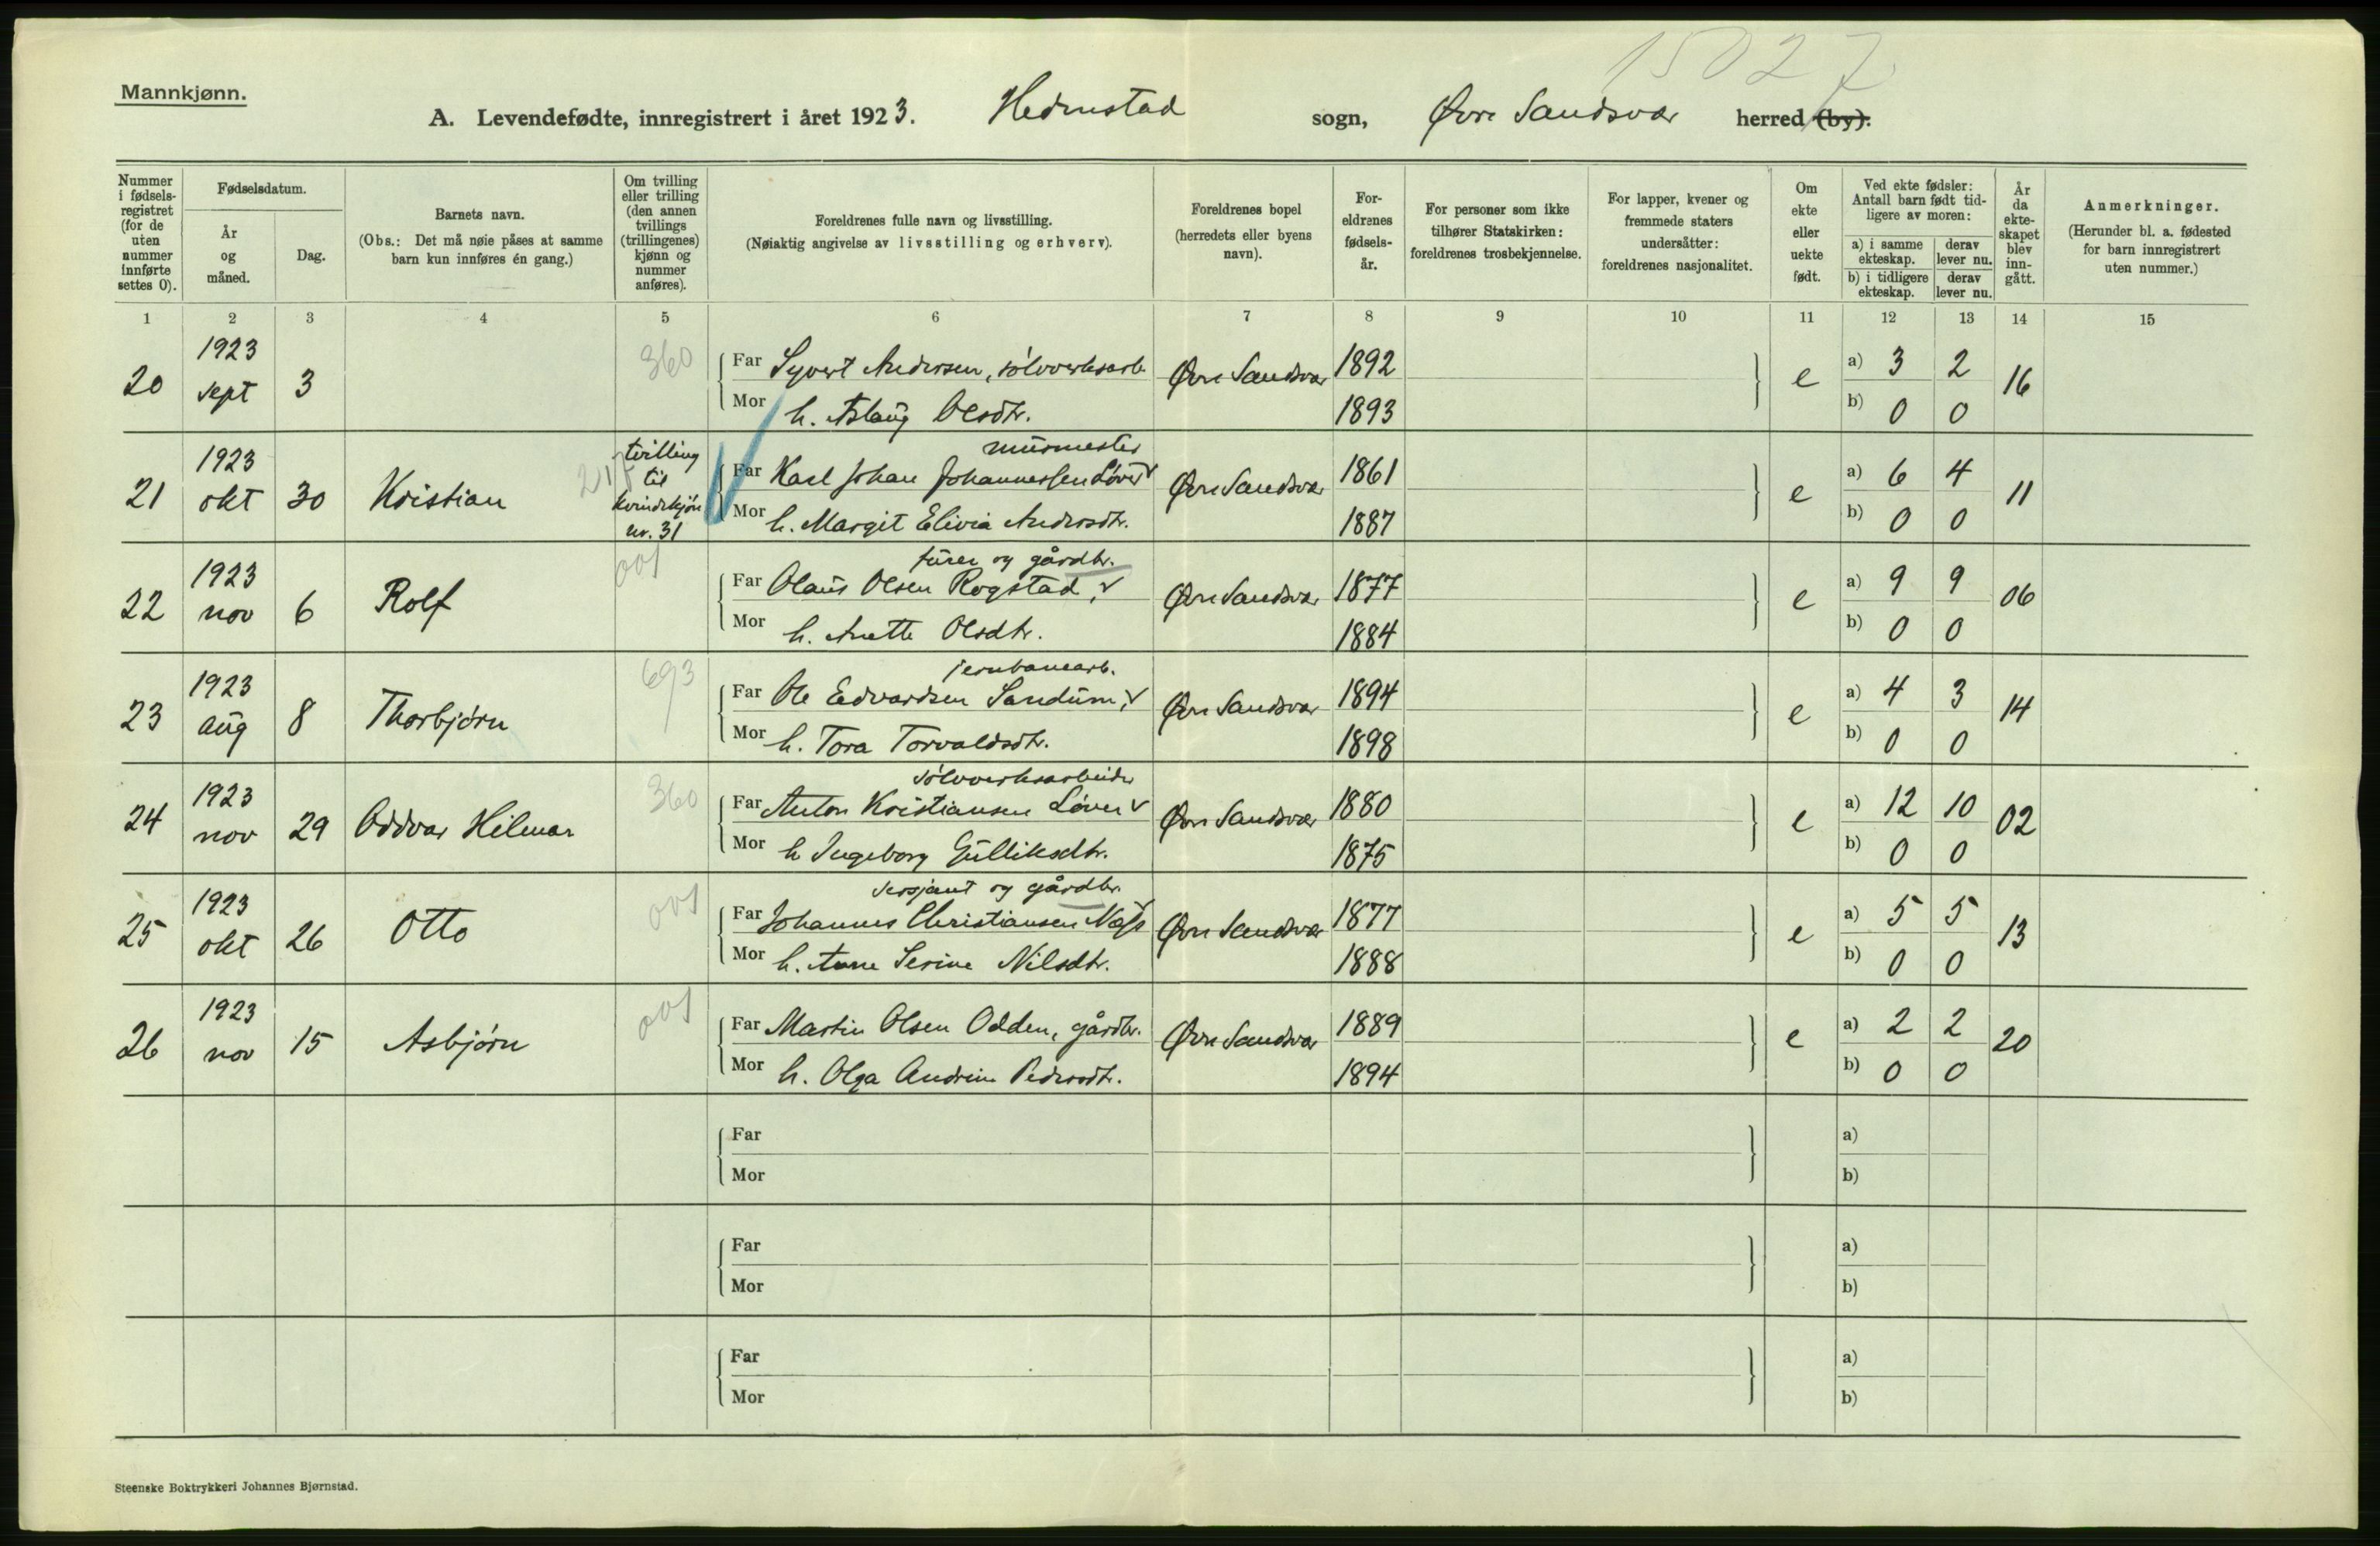 15027
Mannkjønn.
A. Levendefødte, innregistrert i året 1923. Hedenstad sogn, Øvre Sandsvær herred (by).
Nummer i fødsels-registret (for de uten nummer innførte settes 0).
Fødselsdatum.
År og måned.
Dag.
Barnets navn.
(Obs.: Det må nøie påses at samme barn kun innføres én gang.)
Om tvilling eller trilling (den annen tvillings (trillingenes) kjønn og nummer anføres).
Foreldrenes fulle navn og livsstilling.
(Nøiaktig angivelse av livsstilling og erhverv).
Foreldrenes bopel (herredets eller byens navn).
For-eldrenes fødsels-år.
For personer som ikke tilhører Statskirken: foreldrenes trosbekjennelse.
For lapper, kvener og fremmede staters undersåtter: foreldrenes nasjonalitet.
Om ekte eller uekte født.
Ved ekte fødsler: Antall barn født tid-ligere av moren:
a) i samme ekteskap. derav lever nu.
b) i tidligere ekteskap. derav lever nu.
År da ekte-skapet blev inn-gått.
Anmerkninger.
(Herunder bl. a. fødested for barn innregistrert uten nummer.)
1 2 3 4 5 6 7 8 9 10 11 12 13 14 15
20 1923 sept 3 360 Far Syvert Andersen, sølvverksarb. Øvre Sandsvær 1892 e a) 3 2 16
Mor h. Aslaug Olsdtr. 1893 b) 0 0
21 1923 okt 30 Kristian tvilling til kvindekjøn nr. 31 murmester
Far Karl Johan Johannessen Løver Øvre Sandsvær 1861 e a) 6 4 11
Mor h. Margit Elivia Andersdtr. 1887 b) 0 0
22 1923 nov 6 Rolf 001 furer og gårdbr.
Far Olaus Olsen Rogstad, Øvre Sandsvær 1877 e a) 9 9 06
Mor h. Anette Olsdtr. 1884 b) 0 0
23 1923 aug 8 Thorbjørn 693 jernbanearb.
Far Ole Edvardsen Sandum, Øvre Sandsvær 1894 e a) 4 3 14
Mor h. Tora Torvaldsdtr. 1898 b) 0 0
24 1923 nov 29 Oddvar Hilmar 360 sølvverksarbeider
Far Anton Kristiansen Løver Øvre Sandsvær 1880 e a) 12 10 02
Mor h Ingeborg Gulliksdtr. 1875 b) 0 0
25 1923 okt 26 Otto 001 sersjant og gårdbr.
Far Johannes Christiansen Næss Øvre Sandsvær 1877 e a) 5 5 13
Mor h. Anne Serine Nilsdtr. 1888 b) 0 0
26 1923 nov 15 Asbjørn 001 Far Martin Olsen Odden, gårdbr. Øvre Sandsvær 1889 e a) 2 2 20
Mor h. Olga Andrine Pedersdtr. 1894 b) 0 0
Far a)
Mor b)
Far a)
Mor b)
Far a)
Mor b)
Steenske Boktrykkeri Johannes Bjørnstad.